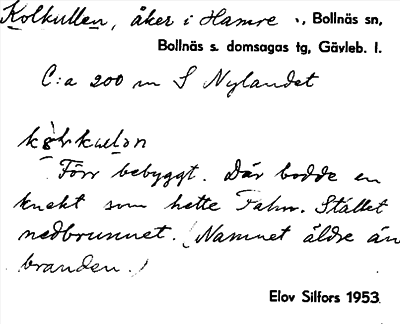 Kolkullen, åker i Hamre ., Bollnäs sn,
Bollnäs s. domsagas tg, Gävleb. l.
C:a 200 m S Nylandet
Förr bebyggt. Där bodde en
knekt som hette Falm. Stället
nedbrunnet. (Namnet äldre än
branden.)
Elov Silfors 1953